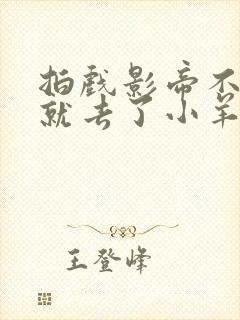 拍戏影帝不
就去了小羊
王登峰